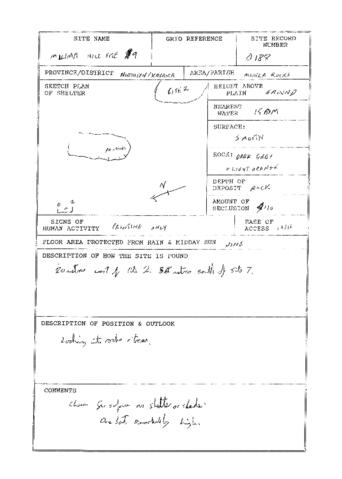 SITE NAME
GRID REFERENCE
SITE RECORD
NUMBER
HILL SITE #9
0188
PROVINCE/DISTRICT NORTHERN/KASAMA
AREA/PARISH MWELA ROCKS
SKETCH PLAN
OF SHELTER
SITE 2
HEIGHT ABOVE
PLAIN GROUND
NEAREST
WATER 150M
SURFACE:
SMOOTH
ROCK: DARK GREY
+ LIGHT ORANGE
N
DEPTH OF
DEPOSIT ROCK
AMOUNT OF
SECLUSION /10
SIGNS OF
HUMAN ACTIVITY PAINTING ONLY
EASE OF
ACCESS 10/10
FLOOR AREA PROTECTED FROM RAIN & MIDDAY SUN NONE
DESCRIPTION OF HOW THE SITE IS FOUND
20 metres west of site 2. metres south of site 7.
DESCRIPTION OF POSITION & OUTLOOK
Looking into rocks + trees.
COMMENTS
no shelter or shade.
One but remarkably high.